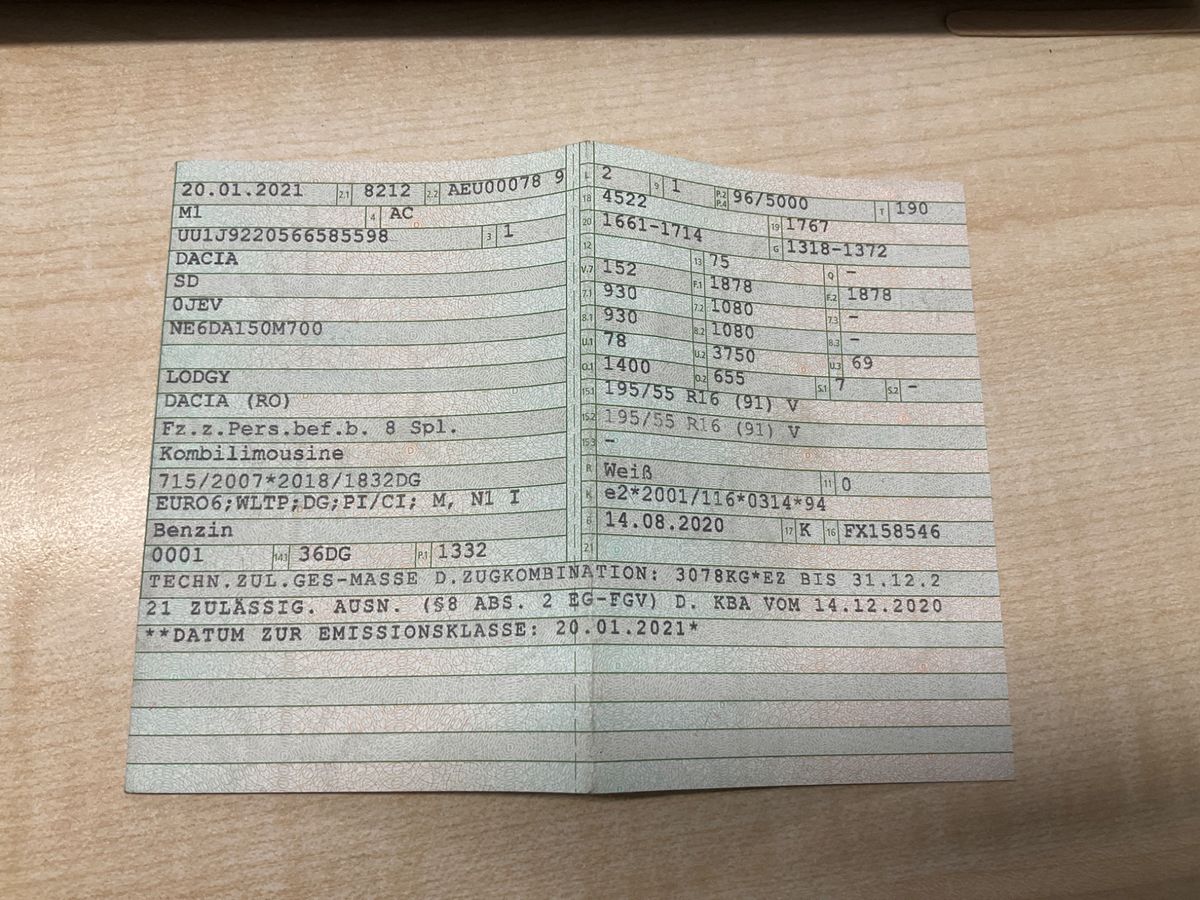 20.01.2021 2.1 8212 2.2 AEU00078 9
M1 4 AC
UU1J9220566585598 3 1
DACIA
SD
0JEV
NE6DA150M700
LODGY
DACIA (RO)
Fz.z.Pers.bef.b. 8 Spl.
Kombilimousine
715/2007*2018/1832DG
EURO6;WLTP;DG;PI/CI; M, N1 I
Benzin
0001 14.1 36DG P.1 1332
L 2 9 1 P.2 P.4 96/5000 T 190
18 4522 19 1767
20 1661-1714 G 1318-1372
12 13 75 Q -
V.7 152 F.1 1878 F.2 1878
7.1 930 7.2 1080 7.3 -
8.1 930 8.2 1080 8.3 -
U.1 78 U.2 3750 U.3 69
O.1 1400 O.2 655 S.1 7 S.2 -
15.1 195/55 R16 (91) V
15.2 195/55 R16 (91) V
15.3 -
R Weiß 11 0
K e2*2001/116*0314*94
6 14.08.2020 17 K 16 FX158546
21
TECHN.ZUL.GES-MASSE D.ZUGKOMBINATION: 3078KG*EZ BIS 31.12.2
21 ZULÄSSIG. AUSN. (§8 ABS. 2 EG-FGV) D. KBA VOM 14.12.2020
**DATUM ZUR EMISSIONSKLASSE: 20.01.2021*